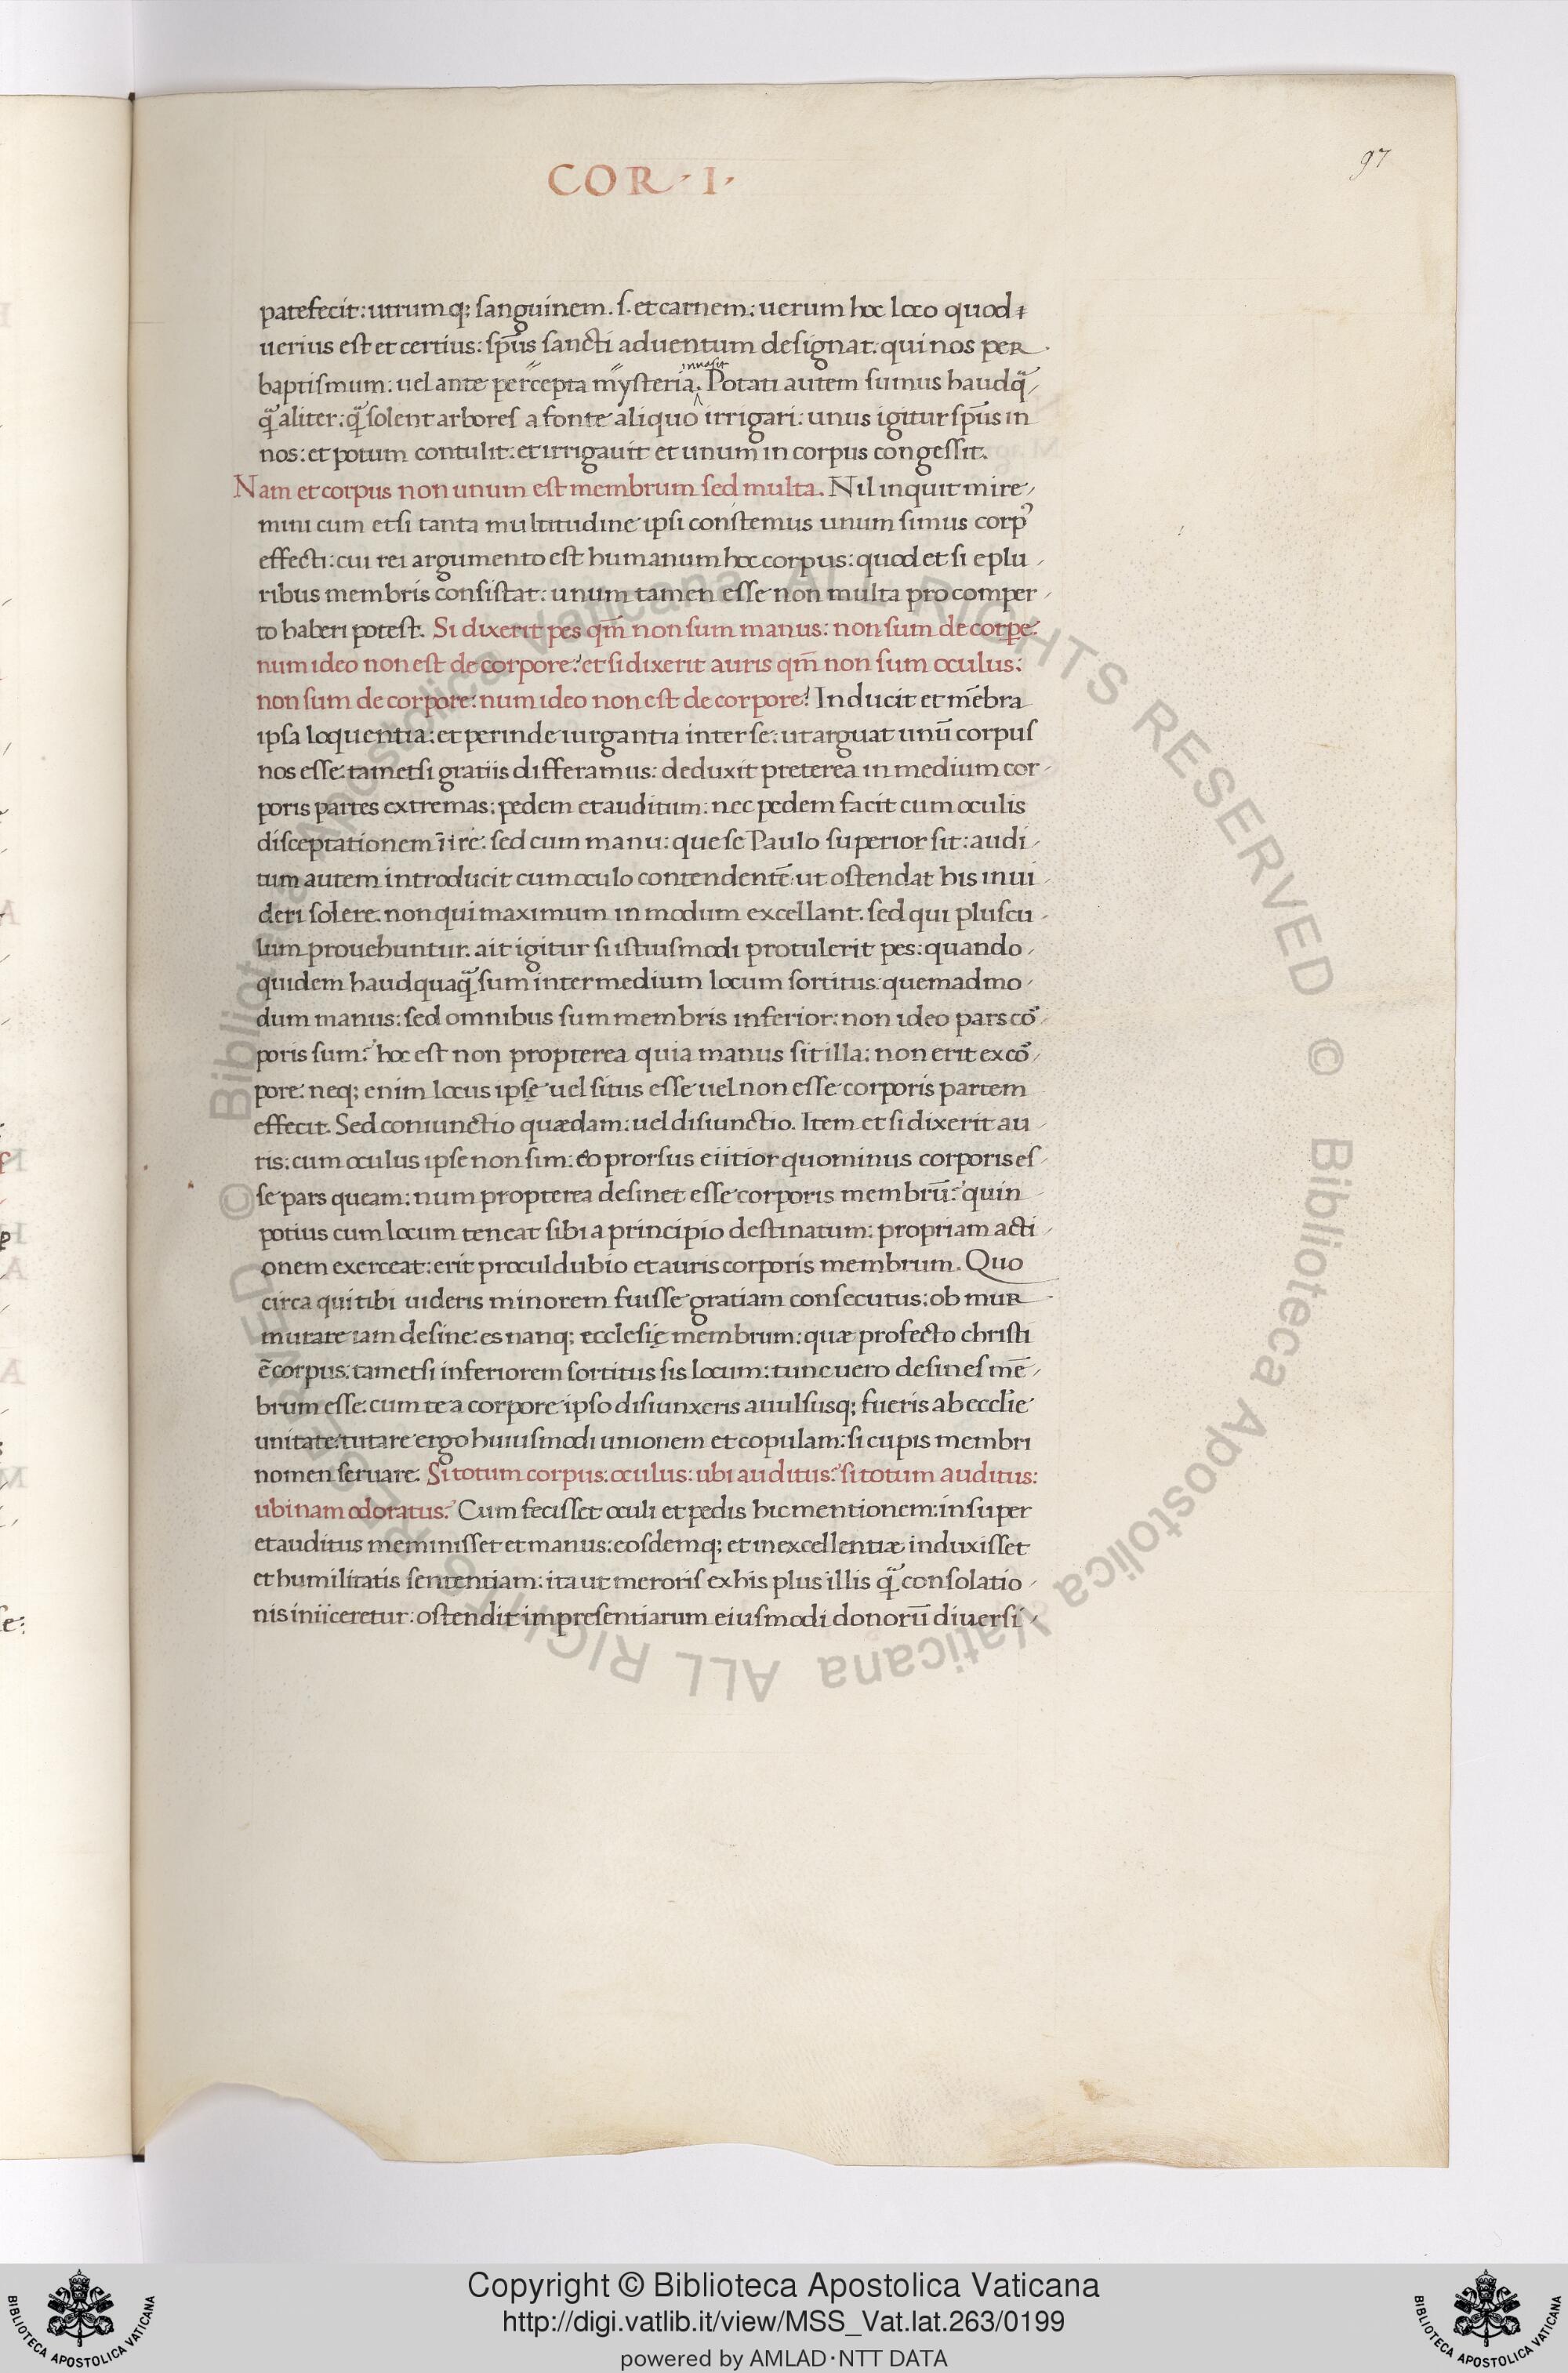 COR · I ·
97
patefecit: utrumq; sanguinem. s. et carnem: uerum hoc loco quod
uerius est et certius: sp̄us sancti aduentum designat. qui nos per
inuasit
baptismum: uel ante percepta mysteria. Potati autem sumus haudq̃
q̃ aliter: q̃ solent arbores a fonte aliquo irrigari: unus igitur sp̄us in
nos: et potum contulit: et irrigauit et unum in corpus congessit.
Nam et corpus non unum est membrum sed multa. Nil inquit mire-
mini cum etsi tanta multitudine ipsi constemus unum simus corpꝰ
effecti: cui rei argumento est humanum hoc corpus: quod et si e plu-
ribus membris consistat: unum tamen esse non multa pro comper-
to haberi potest. Si dixerit pes qm̄ non sum manus: non sum de corpe:
num ideo non est de corpore? et si dixerit auris qm̄ non sum oculus:
non sum de corpore: num ideo non est de corpore? Inducit et mēbra
ipsa loquentia: et perinde iurgantia inter se: ut arguat unū corpus
nos esse: tametsi gratiis differamus: deduxit preterea in medium cor-
poris partes extremas: pedem et auditum: nec pedem facit cum oculis
disceptationem īire: sed cum manu: que se Paulo superior sit: audi-
tum autem introducit cum oculo contendentē: ut ostendat his inui-
deri solere. non qui maximum in modum excellant. sed qui pluscu-
lum prouehuntur. ait igitur si istiusmodi protulerit pes: quando-
quidem haudquaq̃ sum intermedium locum sortitus: quemadmo-
dum manus: sed omnibus sum membris inferior: non ideo pars cō-
poris sum? hoc est non propterea quia manus sit illa: non erit ex cō-
pore: neq; enim locus ipsę uel situs esse uel non esse corporis partem
effecit. Sed coniunctio quædam: uel disiunctio. Item et si dixerit au-
ris: cum oculus ipse non sim: eo prorsus eiitior quominus corporis es-
se pars queam: num propterea desinet esse corporis membrū? quin-
potius cum locum teneat sibi a principio destinatum: propriam acti-
onem exerceat: erit procul dubio et auris corporis membrum. Quo
circa qui tibi uideris minorem fuisse gratiam consecutus: ob mur-
murare iam desine: es nanq; ecclesię membrum: quæ profecto christi
ē corpus: tametsi inferiorem sortitus sis locum: tunc uero desines mē-
brum esse: cum te a corpore ipso disiunxeris auulsusq; fueris ab eccl̄ie
unitate: tutare ergo huiusmodi unionem et copulam: si cupis membri
nomen seruare. Si totum corpus: oculus: ubi auditus? si totum auditus:
ubinam odoratus? Cum fecisset oculi et pedis hic mentionem: insuper
et auditus meminisset et manus: eosdemq; et in excellentiæ induxisset
et humilitatis sententiam: ita ut meroris ex his plus illis q̃ consolatio-
nis iniiceretur: ostendit impresentiarum eiusmodi donorū diuersi-
© Biblioteca Apostolica Vaticana ALL RIGHTS RESERVED © Biblioteca Apostolica Vaticana ALL RIGHTS RESERVED
Copyright © Biblioteca Apostolica Vaticana
http://digi.vatlib.it/view/MSS_Vat.lat.263/0199
powered by AMLAD·NTT DATA
BIBLIOTECA APOSTOLICA VATICANA
BIBLIOTECA APOSTOLICA VATICANA